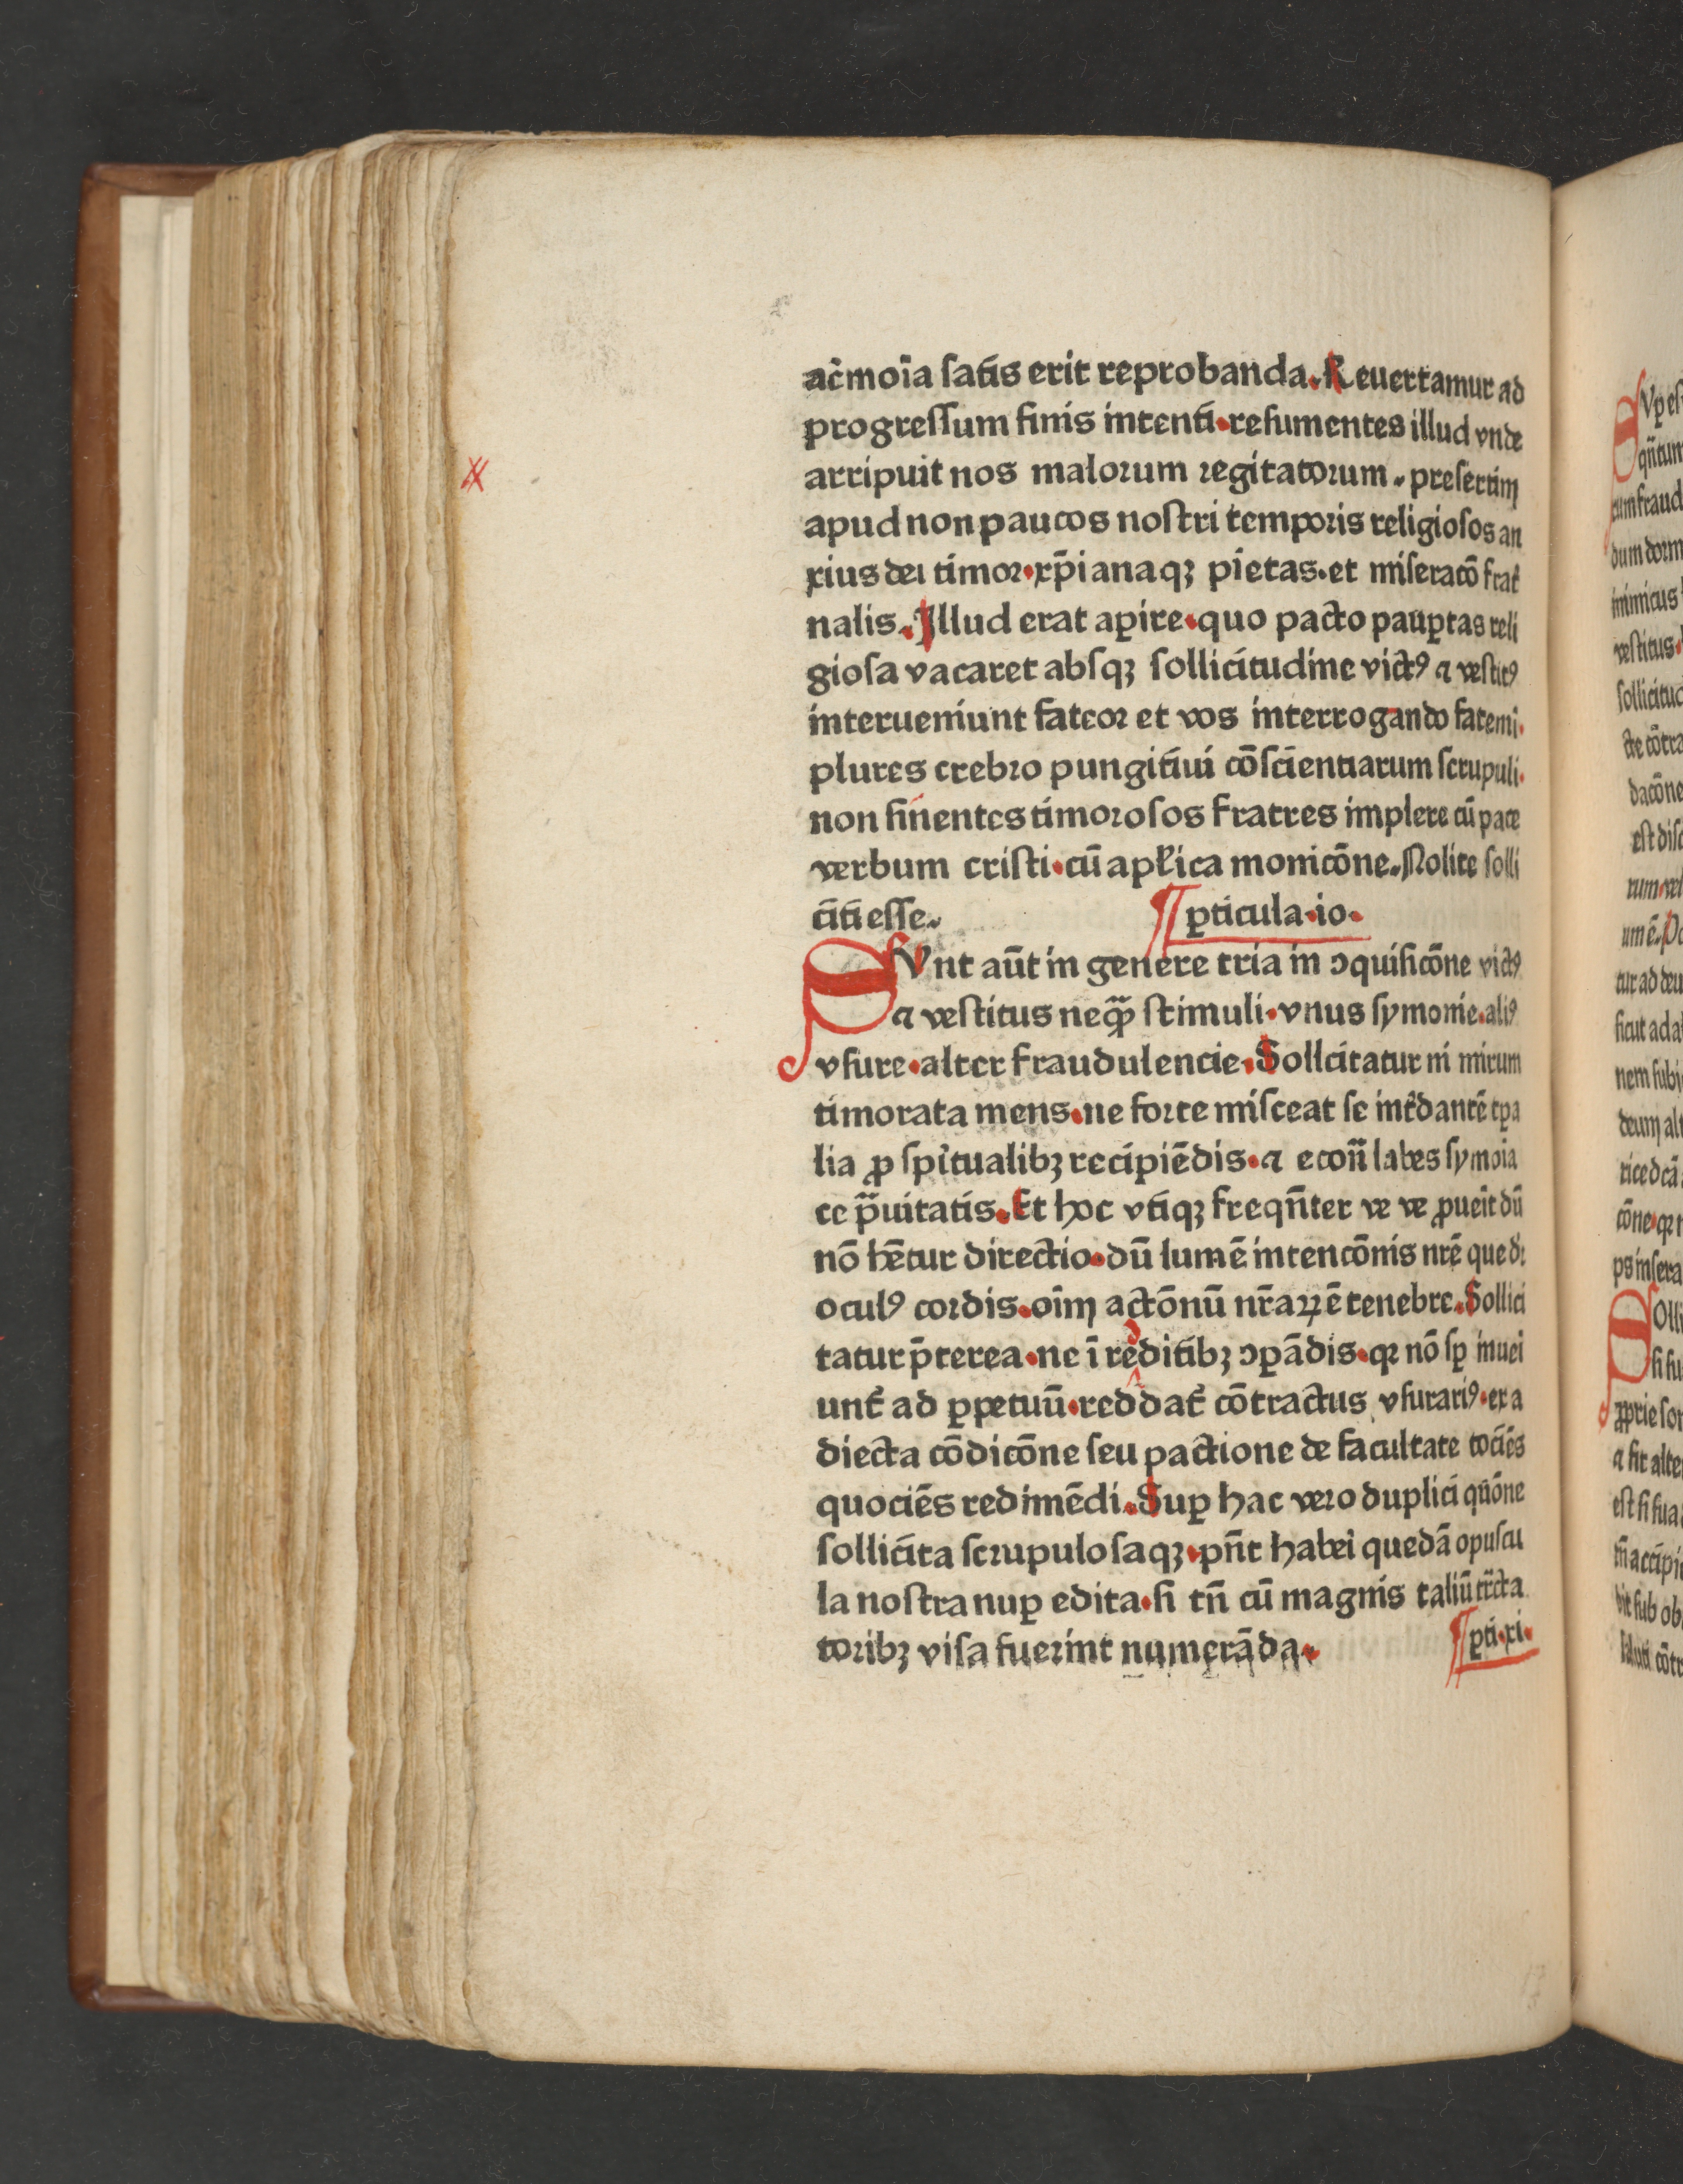 acīmoīa ſatīs erit reprobanda. Reuertamur ad
progreſſum finis intenti. reſumentes illud vnde
arripuit nos malorum regitatorum. preſertim
apud non paucos noſtri temporis religioſos an
xius dei timor. xp̄ianaqꝫ pietas. et miſeracō frat̄
nalis. Illud erat aꝑire. quo pacto pauꝑtas reli
gioſa vacaret abſqꝫ ſollicitudine victꝰ ⁊ veſtitꝰ
interueniunt fateor et vos interrogando fatemi.
plures crebro pungitiui cōſcientiarum ſcrupuli.
non ſinentes timoroſos fratres implere cū pace
verbum criſti. cū apl̄ica monicōne. Nolite ſolli
citi eſſe. ꝑticula. io.
SVnt aūt in genere tria in ↄquiſicōne victꝰ
⁊ veſtitus neqꝫ ſtimuli. vnus ſymonie. aliꝰ
vſure. alter fraudulencie. Sollcitatur ni mirum
timorata mens. ne forte miſceat ſe int̄ dantē tꝑa
lia ꝓ ſpi̅tualibꝫ recipiēdis. ⁊ econ̄ labes ſymoia
ce p̄uitatis. Et hoc vtiqꝫ freqn̄ter ve ve ꝓueīt dū
nō hētur directio. dū lumē intencōnis nr̄e que dr̄
oculꝰ cordis. oīm actōnū nr̄aꝝ ē tenebre. Sollici
tatur p̄terea. ne ī redditibꝫ ↄꝑādis. qꝛ nō ſꝑ inuei
unt̄ ad ꝑpetuū. reddat̄ cōtractus vſurariꝰ. ex a
diecta cōdicōne ſeu pactione de facultate tociēs
quociēs redimēdi. Suꝑ hac vero duplici qn̄ōne
ſollicita ſcrupuloſaqꝫ. pn̄t haberi quedā opuſcu
la noſtra nuꝑ edita. ſi tn̄ cū magnis taliū tr̄cta
toribꝫ viſa fuerint numerāda. ꝑti. xi.